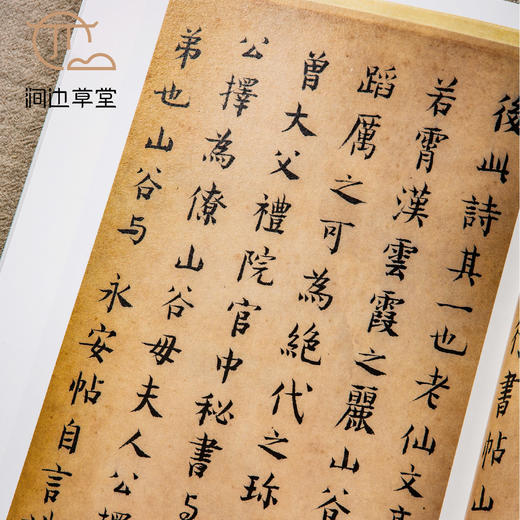 涧边草堂
書帖山
後此詩其一也老仙文
若霄漢雲霞之麗山谷
蹈厲之可為絕代之珎
曾大父禮院官中秘書与
公擇為僚山谷母夫人公擇
弟也山谷与 永安帖自言